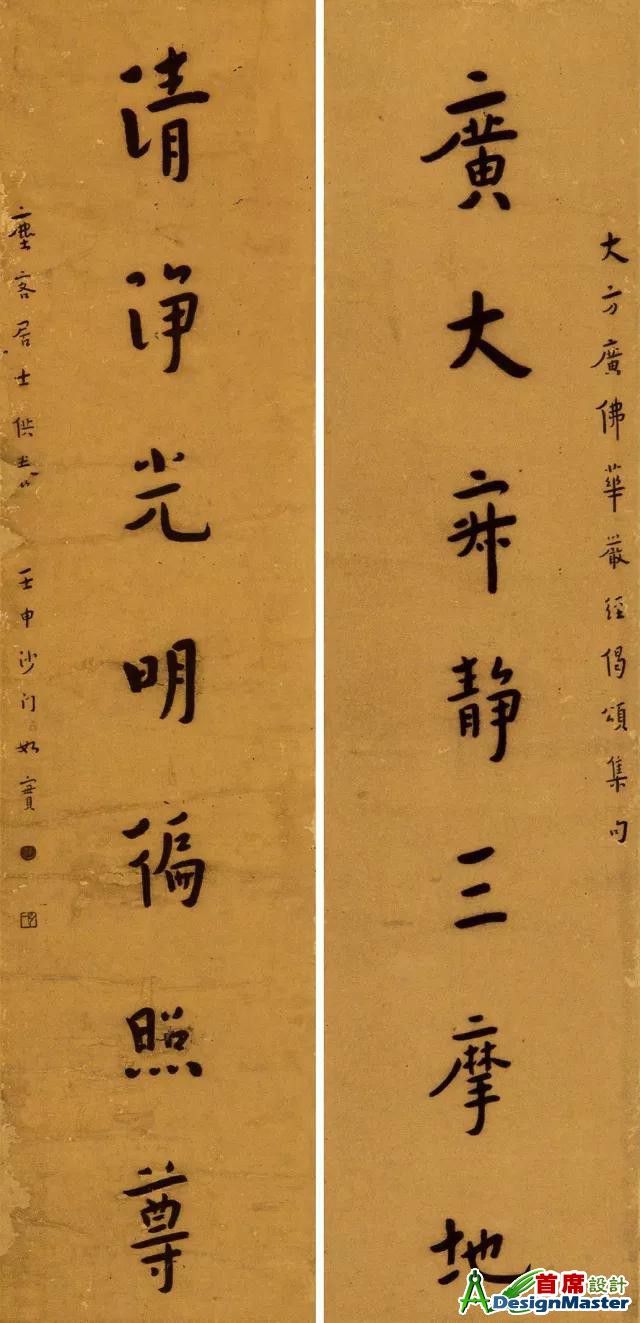 大方廣佛華嚴經偈頌集句
廣大寂静三摩地
清淨光明徧照尊
塵客居士供養 壬申沙门如實
首席設計
DesignMaster